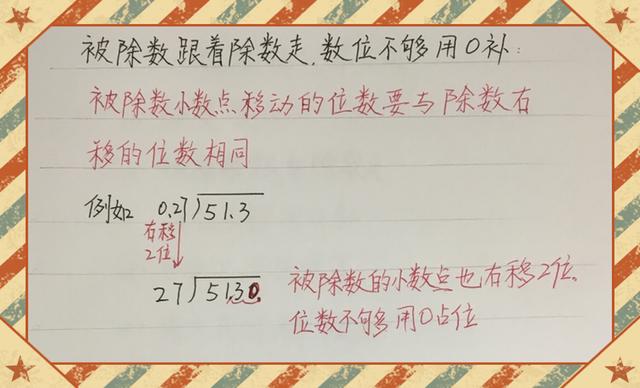 被除数跟着除数走,数位不够用0补:
被除数小数点移动的位数要与除数右
移的位数相同
例如 0.27)51.3
右移
2位
27)5130.
被除数的小数点也右移2位。
位数不够用0占位